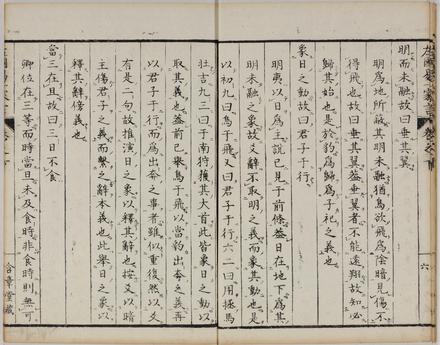 明而未融故曰垂其翼
明為地所蔽其明未融猶鳥欲飛為陰暗見傷不
得飛也故曰垂其翼蓋垂翼者不能遠翔故知必
歸其始也是於豹為歸為子祀之義也
象日之動故曰君子于行
明夷以日為主說已見于前條蓋日在地下為其
明未融之象故爻辭不取明之義而象其動也是
以初九曰鳥于飛又曰君子于行六二曰用拯馬
壯吉九三曰于南狩獲其大首此皆象日之動以
取其義也蓋前已舉鳥于飛以當豹出奔之義再
以君子于行而為出奔之事者雖似重復然以爻
有是二句故推演日之象以釋其辭也按爻以暗
主傷君子之義而繫之辭本義也此舉日之象以
釋其辭傍義也
當三在旦故曰三日不食
卿位在三等而時當旦未及食時非食時則無可
六
含章堂藏